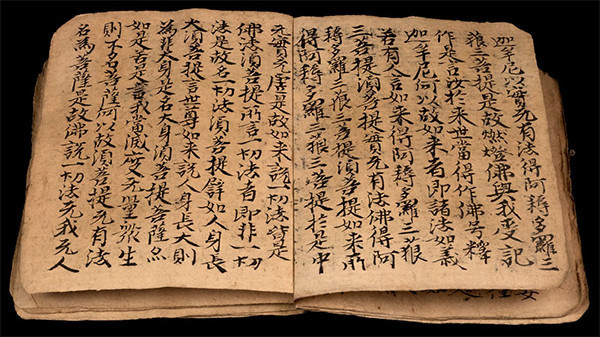 迦牟尼以實无有法得阿耨多羅三
藐三菩提是故燃燈佛與我受記
作是言汝於來世當得作佛号釋
迦牟尼何以故如來者即諸法如義
若有人言如來得阿耨多羅三藐
三菩提須菩提實无有法佛得阿
耨多羅三藐三菩提須菩提如來所
得阿耨多羅三藐三菩提於是中
无實无虛是故如來說一切法皆是
佛法須菩提所言一切法者即非一切
法是故名一切法須菩提譬如人身長
大須菩提言世尊如來說人身長大則
為非大身是名大身須菩提菩薩亦
如是若是言我當滅度无量眾生
則不名菩薩何以故須菩提无有法
名為菩薩是故佛說一切法无我无人